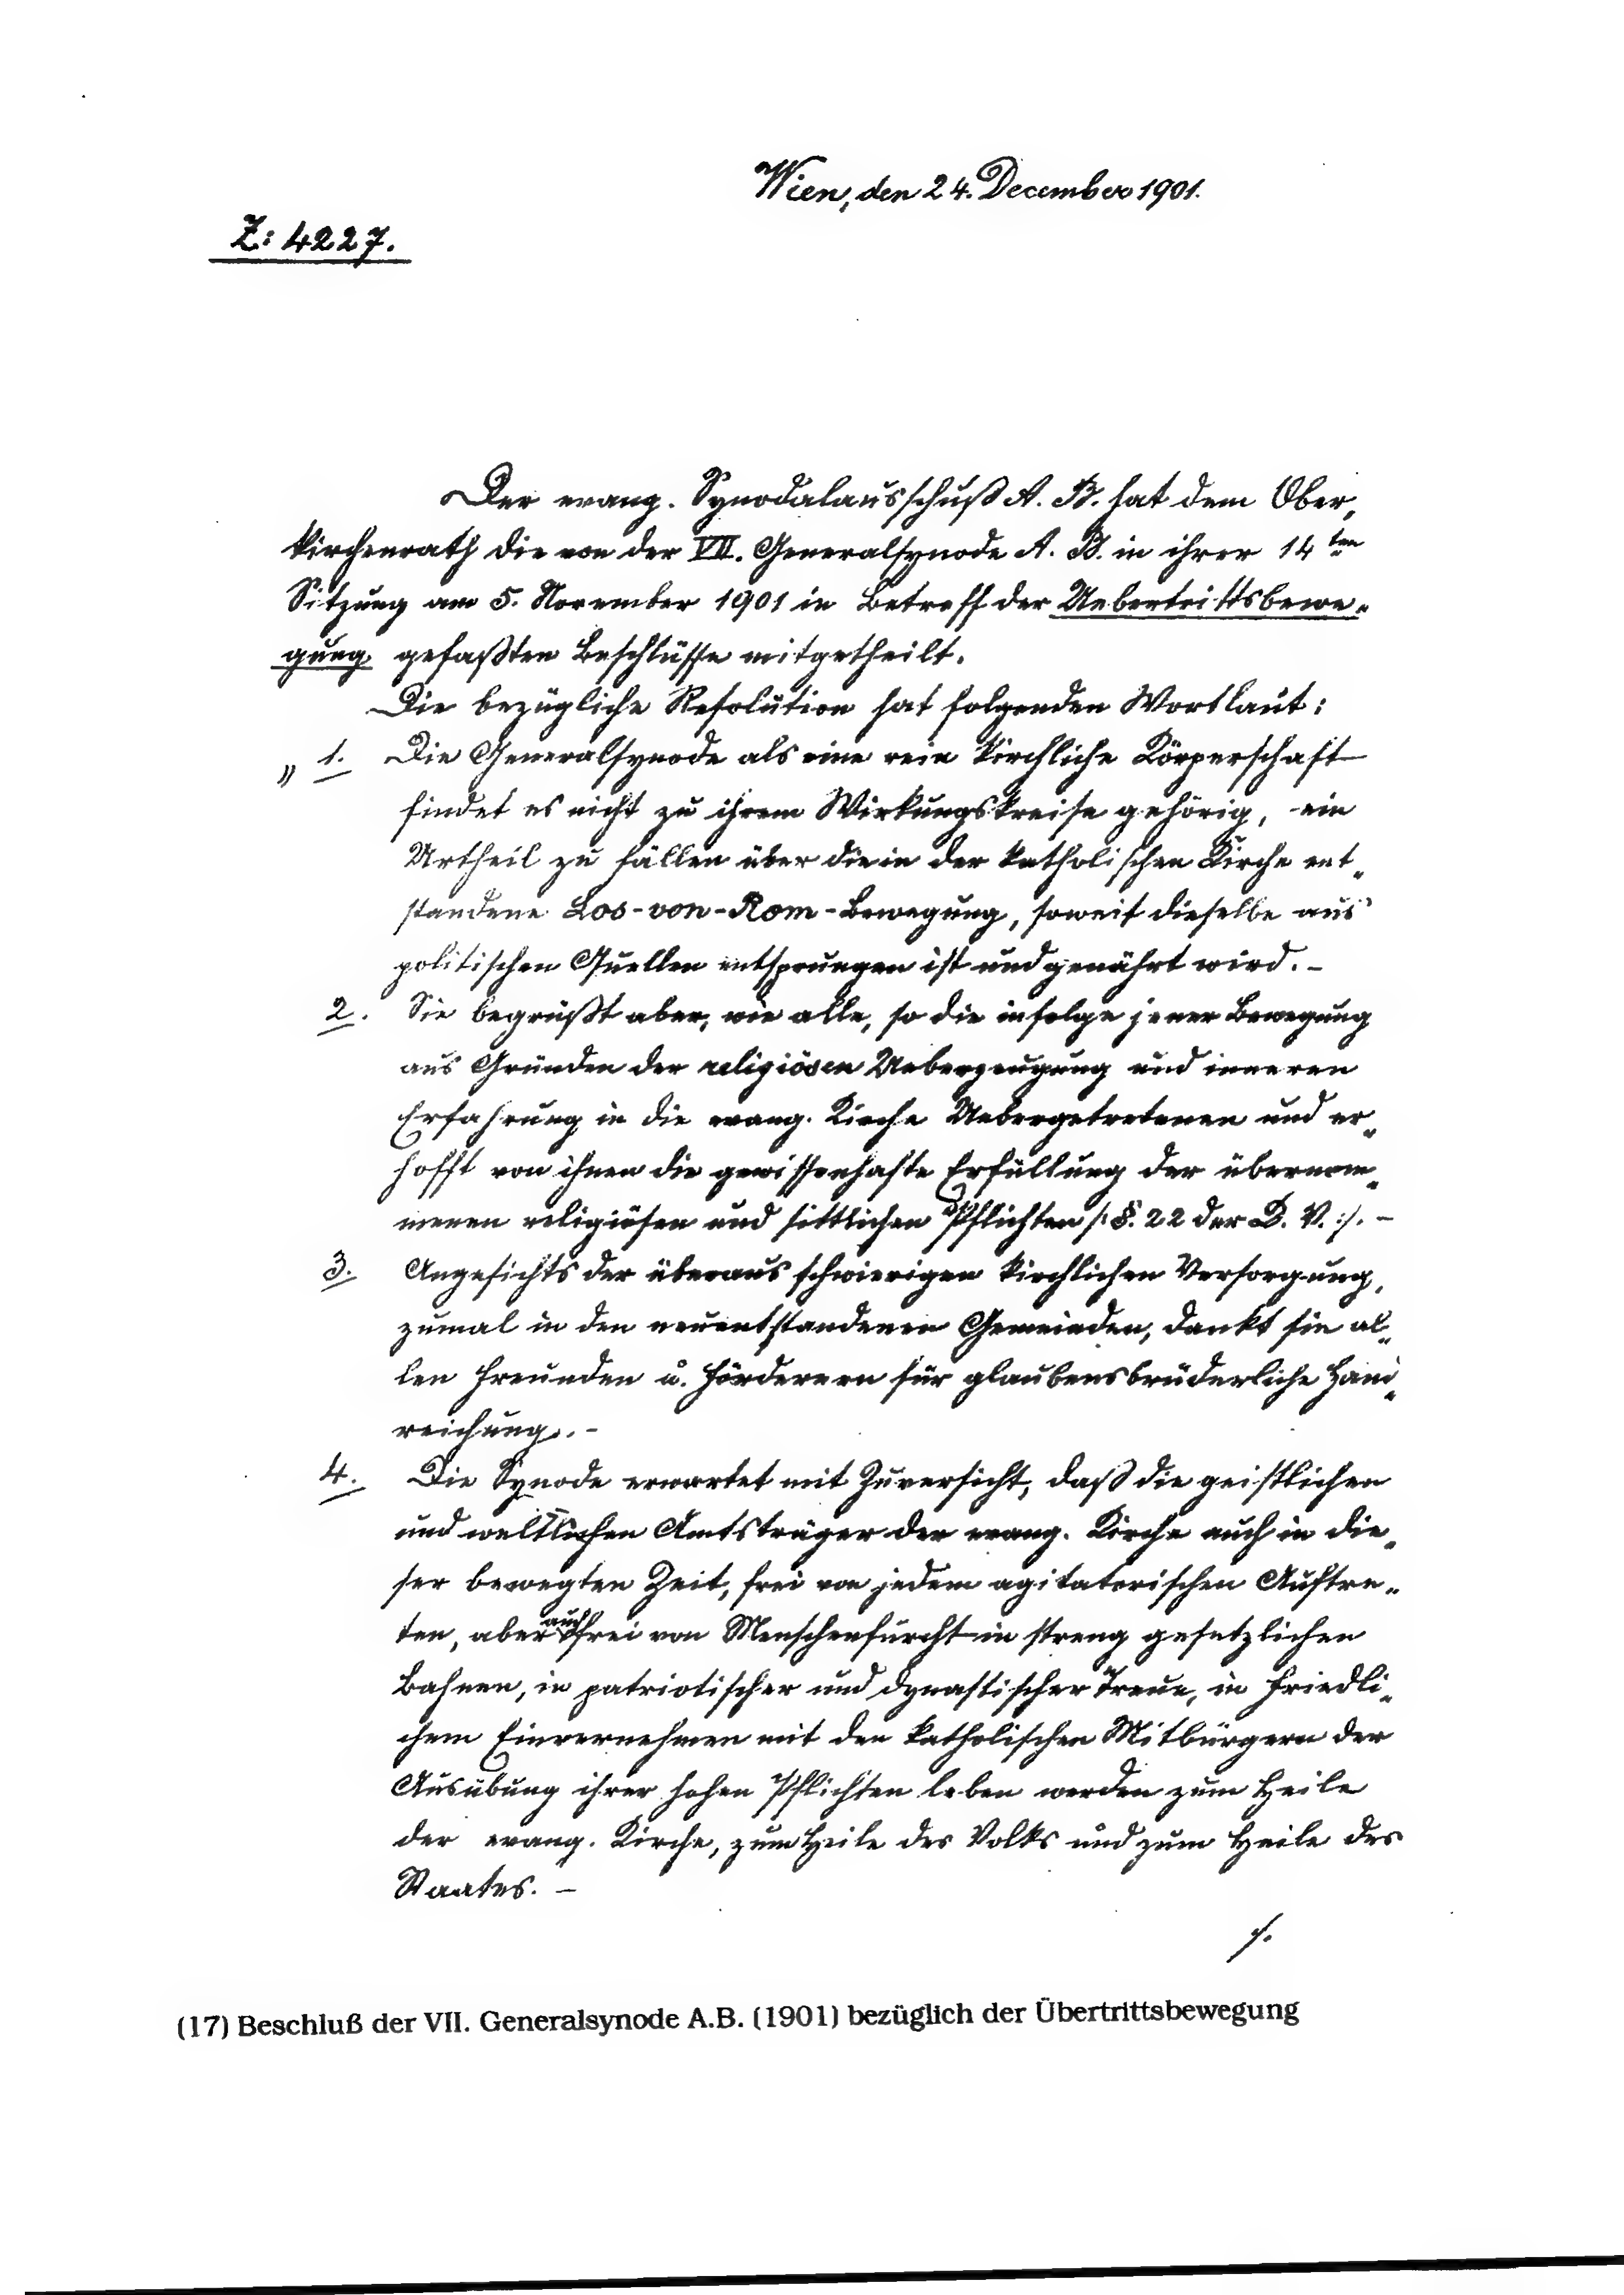 Wien, den 24. December 1901.
Z: 4227.
Der evang. Synodalausschuß A. B. hat dem Ober-
kirchenrath die von der VII. Generalsynode A. B. in ihrer 14ten
Sitzung am 5. November 1901 in Betreff der Uebertrittsbewe-
gung gefaßten Beschlüsse mitgetheilt.
Die bezügliche Resolution hat folgenden Wortlaut:
„1. Die Generalsynode als eine rein kirchliche Körperschaft
findet es nicht zu ihrem Wirkungskreise gehörig, ein
Urtheil zu fällen über die in der katholischen Kirche ent-
standene Los-von-Rom-Bewegung, soweit dieselbe aus
politischen Quellen entsprungen ist und genährt wird. -
2. Sie begrüßt aber, wie alle, so die infolge jener Bewegung
aus Gründen der religiösen Ueberzeugung und inneren
Erfahrung in die evang. Kirche Uebergetretenen und er-
hofft von ihnen die gewissenhafte Erfüllung der übernom-
menen religiösen und sittlichen Pflichten /: §. 22 der K. V. :/. -
3. Angesichts der überaus schwierigen kirchlichen Versorgung,
zumal in den neuentstandenen Gemeinden, dankt sie al-
len Freunden u. Förderern für glaubensbrüderliche Hand-
reichung. -
4. Die Synode erwartet mit Zuversicht, daß die geistlichen
und weltlichen Amtsträger der evang. Kirche auch in die-
ser bewegten Zeit, frei von jedem agitatorischen Auftre-
ten, aber auch frei von Menschenfurcht in streng gesetzlichen
Bahnen, in patriotischer und dynastischer Treue, in friedli-
chem Einvernehmen mit den katholischen Mitbürgern der
Ausübung ihrer hohen Pflichten leben werden zum Heile
der evang. Kirche, zum Heile des Volks und zum Heile des
Staates. -
./.
(17) Beschluß der VII. Generalsynode A.B. (1901) bezüglich der Übertrittsbewegung